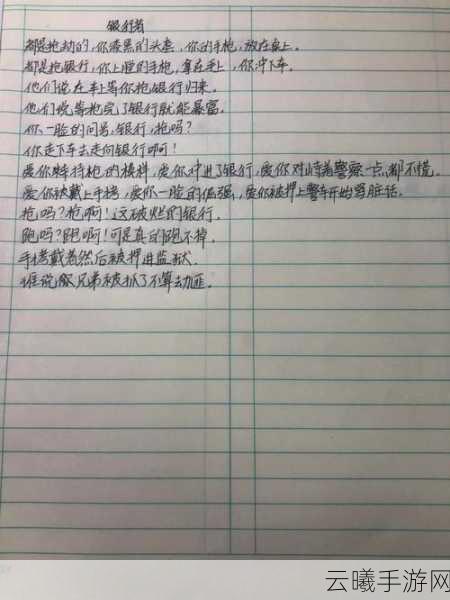 银行者
都是抢劫的,你漆黑的头套,你的手枪,放在桌上。
都是抢银行,你上膛的手枪,拿在手上,你冲下车。
他们说在车上等你抢银行归来。
他们说等抢完了银行就能暴富。
你一脸的问号,银行,抢吗?
你走下车去走向银行啊!
爱你持枪的模样,爱你冲进了银行,爱你对峙着警察一点都不慌。
爱你被戴上手铐,爱你一脸的倔强,爱你被押上警车开始骂脏话。
抢吗?抢啊!这破烂的银行。
跑吗?跑啊!可是真的跑不掉。
手铐戴着然后被押进监狱。
谁说服兄弟被抓了不算劫匪。
云曦手游网